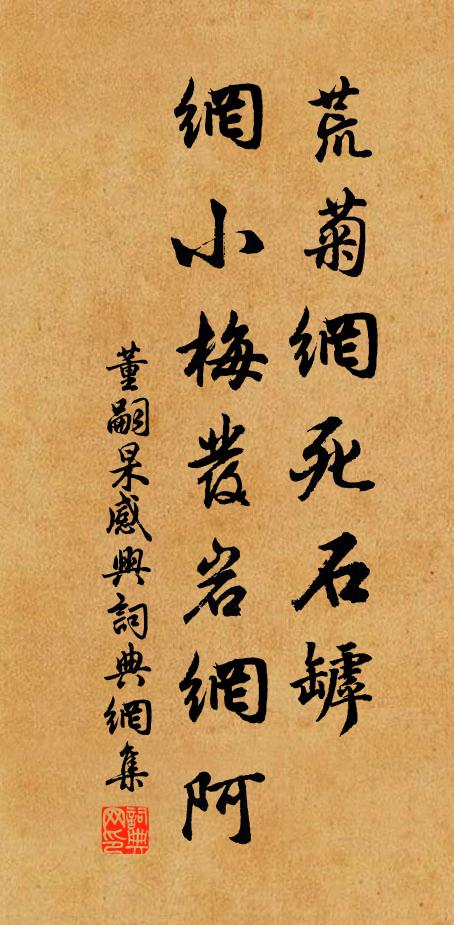 荒菊網死石罅
網小梅發岩網阿
董嗣杲感興詞典網集
詞典
网印